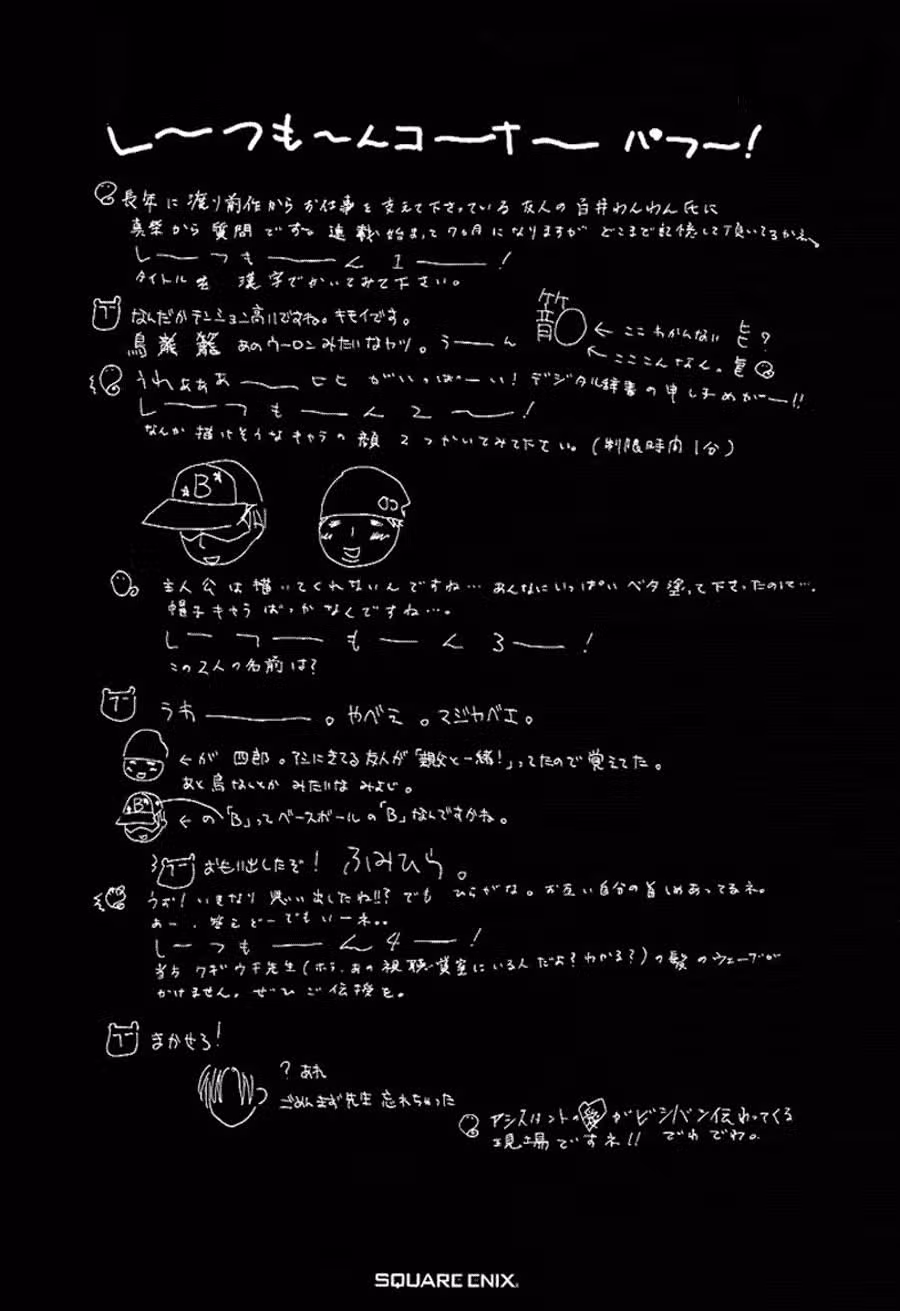 しーつもーんコーナー パフー!
長年に渡り前作からお仕事を支えて下さっている友人の白井わんわん氏に
真柴から質問です。連載始まって7ヵ月になりますがどこまで記憶して頂いてるかネ。
しーつもーーん1ーー!
タイトルを 漢字でかいてみて下さい。
なんだかテンション高いですね。キモイです。
鳥 籠 あのウーロンみたいなヤツ。うーーん
←ここわかんない ヒ?
←こここんなん。
うれぁぁぁーー ヒヒ がいっぱーい!デジタル辞書の申しまめがー!!
しーつもーん2ー!
なんか描けそうなキャラの顔 2つかいてみてたさい。(制限時間1分)
B
主人公は描いてくれないんですね…あんなにいっぱいベタ塗って下さったのに…。
帽子キャラばっかなんですね…。
しーつーもーん3ー!
この2人の名前は?
うわーーー。やべえ。マジヤベエ。
←が 四郎。アシにきてる友人が「親父と一緒!」ってたので覚えてた。
あと鳥なんとか みたいなみよじ。
B
←の「B」ってベースボールの「B」なんですかね。
おもい出したぞ! ふみひら。
うお!いきなり思い出したね!!?でも ひらがな。お互い自分の首しめあってるネ。
あー、答えどーでもいーネ。。
しーつもーーん4ー!
当方 クギウチ先生(ホラ、あの視聴覚室にいる人だよ?わかる?)の髪のウェーブが
かけません。ぜひ ご伝授を。
まかせろ!
? あれ
ごめんまず先生忘れちゃった
アシスタントの愛がビシバシ伝わってくる
現場ですネ!! でわでわ。
SQUARE ENIX.